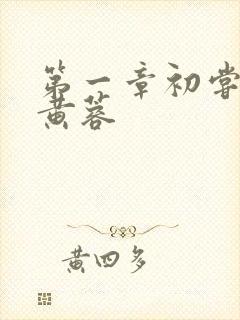 第一章初尝
黄蓉
黄四多